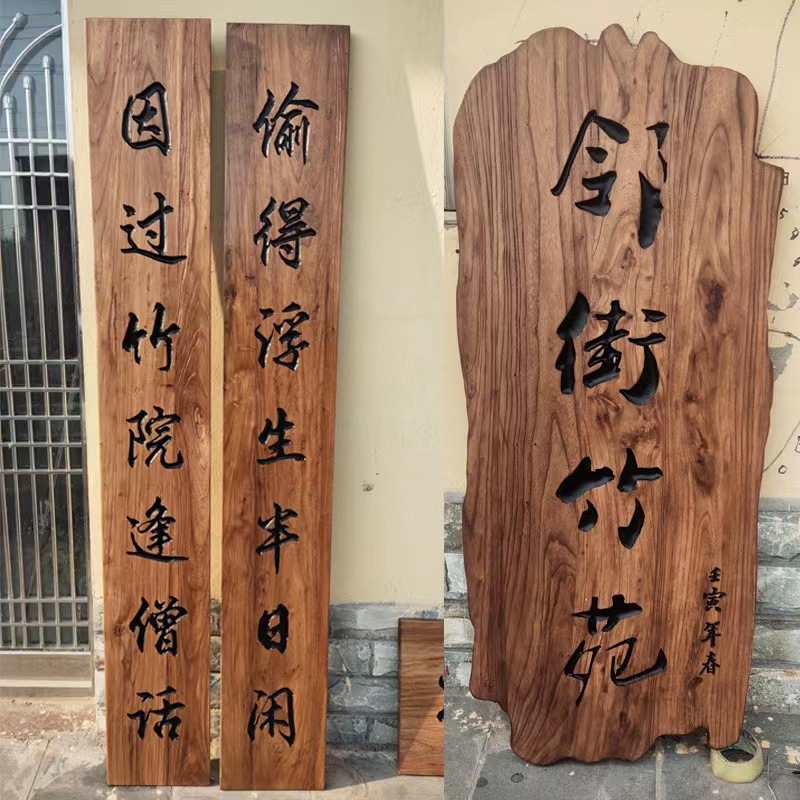 因过竹院逢僧话
偷得浮生半日闲
邻街竹苑
壬寅年春